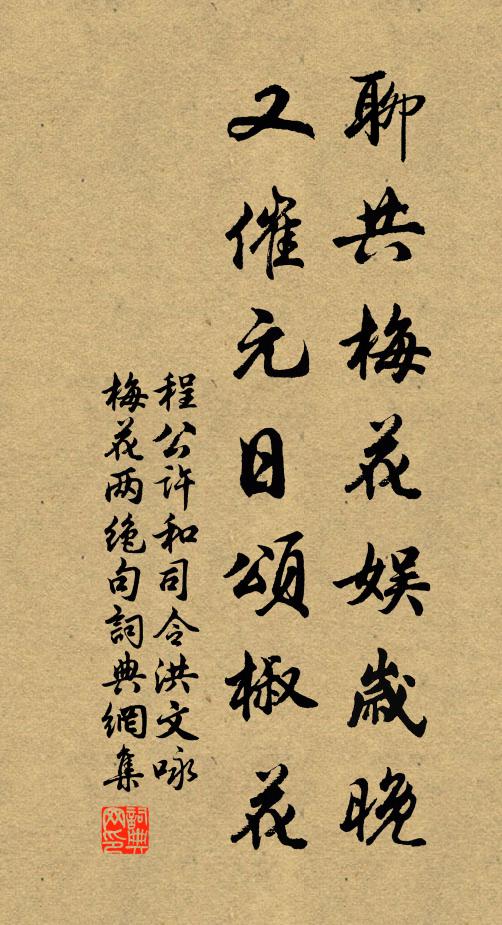 聊共梅花娱歲晚
又催元日頌椒花
程公许和司令洪文咏
梅花两绝句詞典網集
詞典网印